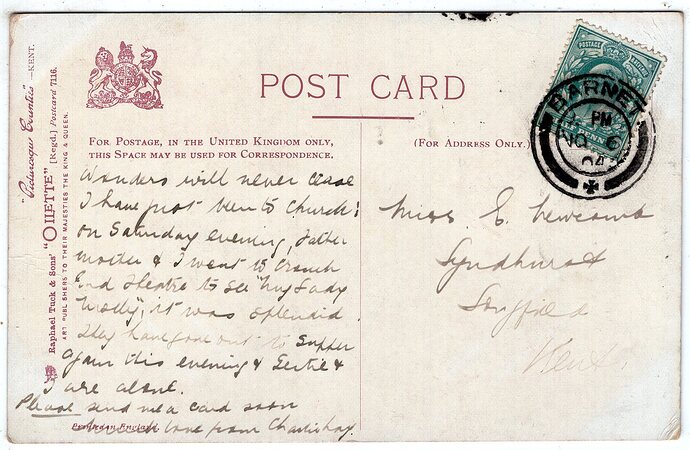 "Picturesque Counties"—KENT.
Raphael Tuck & Sons' "OILETTE" [Regd.] Postcard 7116.
ART PUBLISHERS TO THEIR MAJESTIES THE KING & QUEEN.
POST CARD
FOR POSTAGE, IN THE UNITED KINGDOM ONLY,
THIS SPACE MAY BE USED FOR CORRESPONDENCE.
(FOR ADDRESS ONLY.)
POSTAGE
BARNET
PM
NO 6
04
Wonders will never cease
I have just been to Church!
on Saturday evening, Father
mother & I went to Crouch
End Theatre to see "My Lady
Molly", it was splendid
They have gone out to supper
again this evening & Gertie &
I are alone.
Please send me a card soon
love from
Miss E. Newcomb
Lyndhurst
Kent